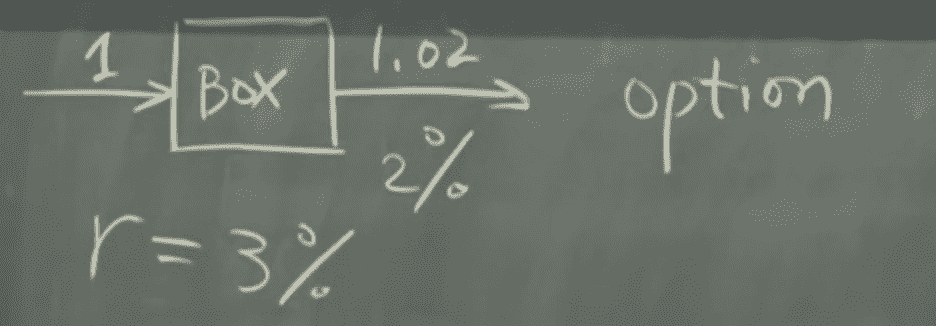 1 BOX 1.02 option
2%
r = 3%